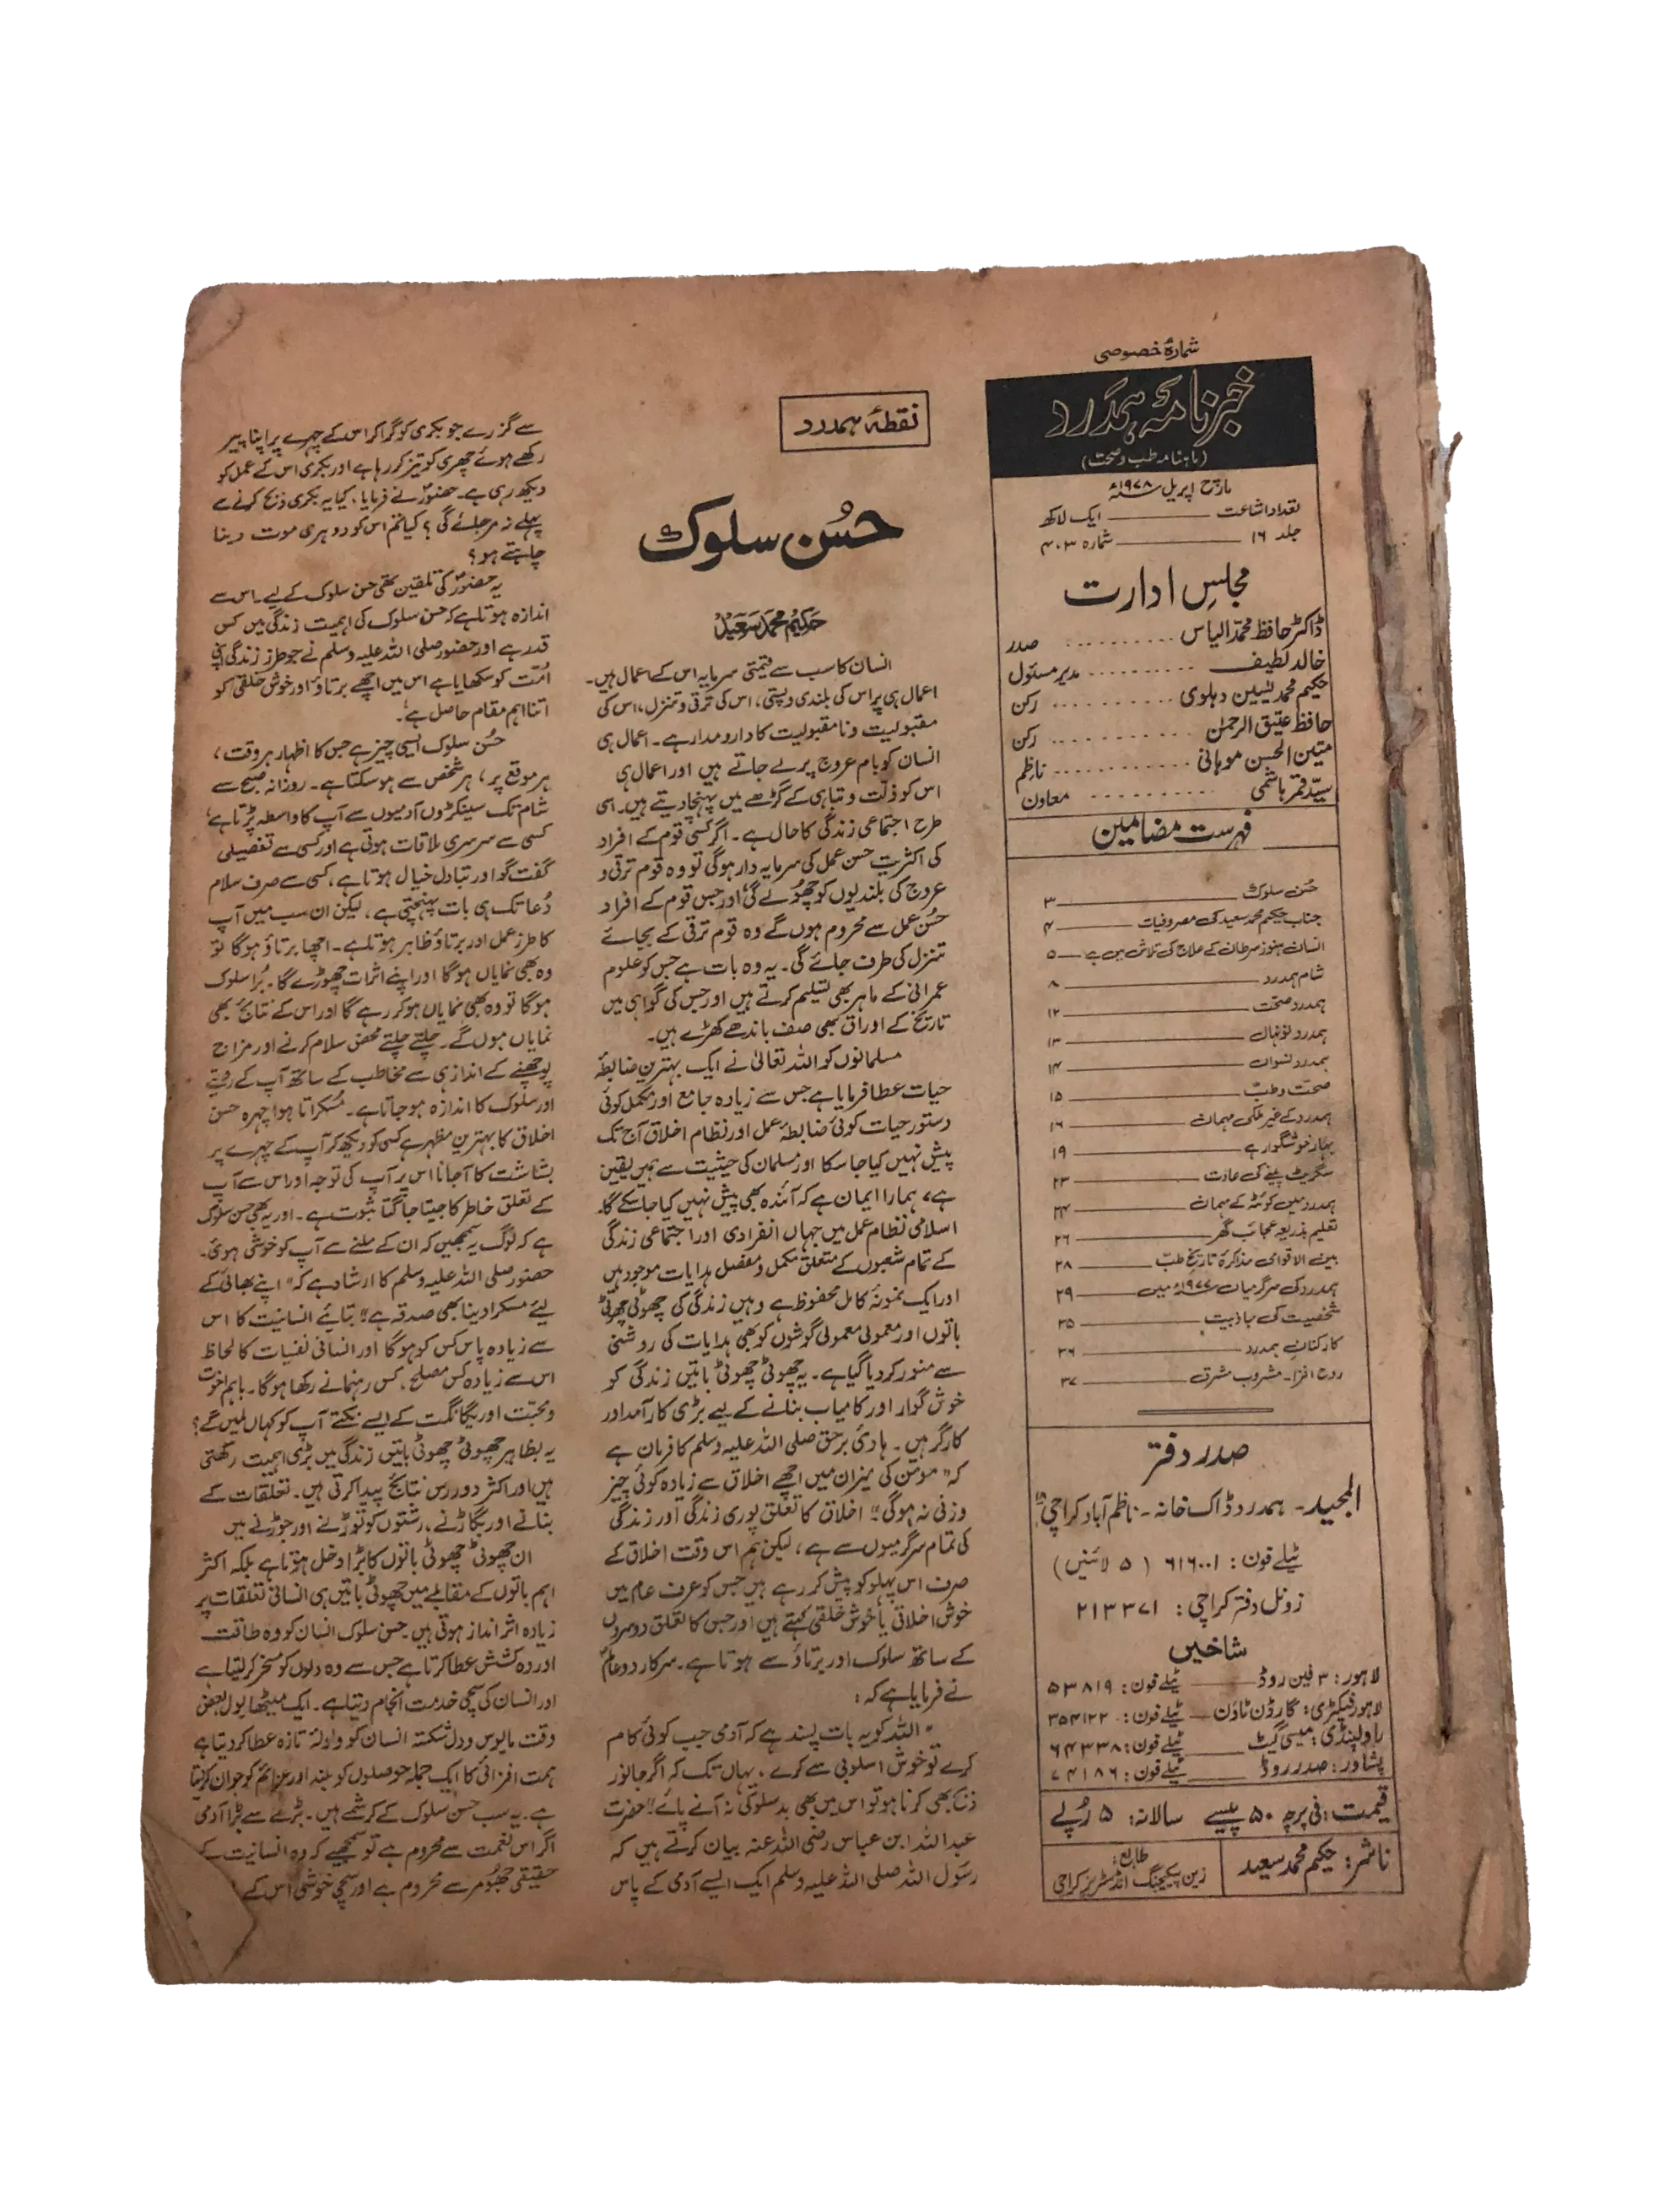 شمارۂ خصوصی
خبرنامۂ ہمدرد
(ماہنامہ طب و صحت)
مارچ اپریل ۱۹۷۸ء
تعداد اشاعت ــــــ ایک لاکھ
جلد ۱۶ ــــــ شمارہ ۳،۴
مجلسِ ادارت
ڈاکٹر حافظ محمد الیاس ........ صدر
خالد لطیف ........ مدیر مسئول
حکیم محمد یٰسین دہلوی ........ رکن
حافظ عتیق الرحمٰن ........ رکن
متین الحسن موہانی ........ ناظم
سیّد قمر ہاشمی ........ معاون
فہرست مضامین
حُسن سلوک ــــــ ۳
جناب حکیم محمد سعید کی مصروفیات ــــــ ۴
انسان ہنوز سرطان کے علاج کی تلاش میں ہے ــــــ ۵
شام ہمدرد ــــــ ۸
ہمدرد صحت ــــــ ۱۲
ہمدرد نونہال ــــــ ۱۳
ہمدرد نسواں ــــــ ۱۴
صحت و طب ــــــ ۱۵
ہمدرد کے غیر ملکی مہمان ــــــ ۱۶
بہار خوشگوار ہے ــــــ ۱۹
سگریٹ پینے کی عادت ــــــ ۲۳
ہمدرد میں کوئٹہ کے مہمان ــــــ ۲۴
تعلیم بذریعہ عجائب گھر ــــــ ۲۶
بین الاقوامی مذاکرۂ تاریخ طب ــــــ ۲۸
ہمدرد کی سرگرمیاں ۱۹۷۷ء میں ــــــ ۲۹
شخصیت کی جاذبیت ــــــ ۳۵
کارکنان ہمدرد ــــــ ۳۶
روح افزا۔ مشروب مشرق ــــــ ۳۷
صدر دفتر
المجید۔ ہمدرد ڈاک خانہ۔ ناظم آباد کراچی ۱۸
ٹیلے فون: ۶۱۶۰۰۱ (۵ لائنیں)
زونل دفتر کراچی: ۲۱۳۳۷۱
شاخیں
لاہور: ۳ فین روڈ ــــــ ٹیلے فون: ۵۳۸۱۹
لاہور فیکٹری: گارڈن ٹاؤن ــــــ ٹیلے فون: ۳۵۴۱۲۲
راولپنڈی: میسی گیٹ ــــــ ٹیلے فون: ۶۴۳۳۸
پشاور: صدر روڈ ــــــ ٹیلے فون: ۷۴۱۸۶
قیمت: فی پرچہ ۵۰ پیسے سالانہ: ۵ رُپے
ناشر: حکیم محمد سعید
طابع:
زین پیکیجنگ انڈسٹریز کراچی
نقطۂ ہمدرد
حُسن سلوک
حکیم محمد سعید
انسان کا سب سے قیمتی سرمایہ اس کے اعمال ہیں۔
اعمال ہی پر اس کی بلندی و پستی، اس کی ترقی و تنزل، اس کی
مقبولیت و نا مقبولیت کا دارومدار ہے۔ اعمال ہی
انسان کو بام عروج پر لے جاتے ہیں اور اعمال ہی
اس کو ذلّت و تباہی کے گڑھے میں پہنچا دیتے ہیں۔ اسی
طرح اجتماعی زندگی کا حال ہے۔ اگر کسی قوم کے افراد
کی اکثریت حسن عمل کی سرمایہ دار ہوگی تو وہ قوم ترقی و
عروج کی بلندیوں کو چھُولے گی اور جس قوم کے افراد
حُسن عمل سے محروم ہوں گے وہ قوم ترقی کے بجائے
تنزل کی طرف جائے گی۔ یہ وہ بات ہے جس کو علوم
عمرانی کے ماہر بھی تسلیم کرتے ہیں اور جس کی گواہی میں
تاریخ کے اوراق بھی صف باندھے کھڑے ہیں۔
مسلمانوں کو اللہ تعالیٰ نے ایک بہترین ضابطۂ
حیات عطا فرمایا ہے جس سے زیادہ جامع اور مکمل کوئی
دستور حیات کوئی ضابطۂ عمل اور نظام اخلاق آج تک
پیش نہیں کیا جا سکا اور مسلمان کی حیثیت سے ہمیں یقین
ہے، ہمارا ایمان ہے کہ آئندہ بھی پیش نہیں کیا جا سکے گا۔
اسلامی نظام عمل میں جہاں انفرادی اور اجتماعی زندگی
کے تمام شعبوں کے متعلق مکمل و مفصل ہدایات موجود ہیں
اور ایک نمونۂ کامل محفوظ ہے وہیں زندگی کی چھوٹی چھوٹی
باتوں اور معمولی معمولی گوشوں کو بھی ہدایات کی روشنی
سے منور کر دیا گیا ہے۔ یہ چھوٹی چھوٹی باتیں زندگی کو
خوش گوار اور کامیاب بنانے کے لیے بڑی کار آمد اور
کارگر ہیں۔ ہادیٔ برحق صلی اللہ علیہ وسلم کا فرمان ہے
کہ "مومن کی میزان میں اچھے اخلاق سے زیادہ کوئی چیز
وزنی نہ ہوگی"۔ اخلاق کا تعلق پوری زندگی اور زندگی
کی تمام سرگرمیوں سے ہے، لیکن ہم اس وقت اخلاق کے
صرف اس پہلو کو پیش کر رہے ہیں جس کو عرف عام میں
خوش اخلاقی یا خوش خلقی کہتے ہیں اور جس کا تعلق دوسروں
کے ساتھ سلوک اور برتاؤ سے ہوتا ہے۔ سرکار دو عالم
نے فرمایا ہے کہ:
"اللہ کو یہ بات پسند ہے کہ آدمی جب کوئی کام
کرے تو خوش اسلوبی سے کرے، یہاں تک کہ اگر جانور
ذبح بھی کرنا ہو تو اس میں بھی بد سلوکی نہ آنے پائے"۔ حضرت
عبد اللہ ابن عباس رضی اللہ عنہ بیان کرتے ہیں کہ
رسول اللہ صلی اللہ علیہ وسلم ایک ایسے آدمی کے پاس
سے گزرے جو بکری کو گرا کر اس کے چہرے پر اپنا پیر
رکھے ہوئے چھری کو تیز کر رہا ہے اور بکری اس کے عمل کو
دیکھ رہی ہے۔ حضورؐ نے فرمایا، کیا یہ بکری ذبح کرنے سے
پہلے نہ مر جائے گی؟ کیا تم اس کو دوہری موت دینا
چاہتے ہو؟
یہ حضورؐ کی تلقین تھی حسن سلوک کے لیے۔ اس سے
اندازہ ہوتا ہے کہ حسن سلوک کی اہمیت زندگی میں کس
قدر ہے اور حضور صلی اللہ علیہ وسلم نے جو طرز زندگی اپنی
امّت کو سکھایا ہے اس میں اچھے برتاؤ اور خوش خلقی کو
اتنا اہم مقام حاصل ہے۔
حُسن سلوک ایسی چیز ہے جس کا اظہار ہر وقت،
ہر موقع پر، ہر شخص سے ہو سکتا ہے۔ روزانہ صبح سے
شام تک سینکڑوں آدمیوں سے آپ کا واسطہ پڑتا ہے،
کسی سے سرسری ملاقات ہوتی ہے اور کسی سے تفصیلی
گفت گو اور تبادل خیال ہوتا ہے، کسی سے صرف سلام
دُعا تک ہی بات پہنچتی ہے، لیکن ان سب میں آپ
کا طرز عمل اور برتاؤ ظاہر ہوتا ہے۔ اچھا برتاؤ ہوگا تو
وہ بھی نمایاں ہوگا اور اپنے اثرات چھوڑے گا۔ بُرا سلوک
ہوگا تو وہ بھی نمایاں ہو کر رہے گا اور اس کے نتائج بھی
نمایاں ہوں گے۔ چلتے چلتے محض سلام کرنے اور مزاج
پوچھنے کے انداز ہی سے مخاطب کے ساتھ آپ کے رویّے
اور سلوک کا اندازہ ہو جاتا ہے۔ مُسکراتا ہوا چہرہ حسن
اخلاق کا بہترین مظہر ہے کسی کو دیکھ کر آپ کے چہرے پر
بشاشت کا آجانا اس پر آپ کی توجہ اور اس سے آپ
کے تعلق خاطر کا جیتا جاگتا ثبوت ہے۔ اور یہ بھی حسن سلوک
ہے کہ لوگ یہ سمجھیں کہ ان کے ملنے سے آپ کو خوشی ہوئی۔
حضور صلی اللہ علیہ وسلم کا ارشاد ہے کہ "اپنے بھائی کے
لیے مسکرا دینا بھی صدقہ ہے"۔ بتائیے انسانیت کا اس
سے زیادہ پاس کس کو ہوگا اور انسانی نفسیات کا لحاظ
اس سے زیادہ کس مصلح، کس رہنما نے رکھا ہوگا۔ باہم اخوت
و محبّت اور یگانگت کے ایسے نکتے آپ کو کہاں ملیں گے؟
یہ بظاہر چھوٹی چھوٹی باتیں زندگی میں بڑی اہمیت رکھتی
ہیں اور اکثر دور رس نتائج پیدا کرتی ہیں۔ تعلقات کے
بنانے اور بگاڑنے، رشتوں کو توڑنے اور جوڑنے میں
ان چھوٹی چھوٹی باتوں کا بڑا دخل ہوتا ہے بلکہ اکثر
اہم باتوں کے مقابلے میں چھوٹی باتیں ہی انسانی تعلقات پر
زیادہ اثر انداز ہوتی ہیں۔ حسن سلوک انسان کو وہ طاقت
اور وہ کشش عطا کرتا ہے جس سے وہ دلوں کو مسخر کر لیتا ہے
اور انسان کی سچی خدمت انجام دیتا ہے۔ ایک میٹھا بول بعض
وقت مایوس و دل شکستہ انسان کو ولولۂ تازہ عطا کر دیتا ہے
ہمت افزائی کا ایک جملہ حوصلوں کو بلند اور عزائم کو جوان کر دیتا
ہے۔ یہ سب حسن سلوک کے کرشمے ہیں۔ بڑے سے بڑا آدمی
اگر اس نعمت سے محروم ہے تو سمجھیے کہ وہ انسانیت کے
حقیقی جھُومر سے محروم ہے اور سچی خوشی اس کے